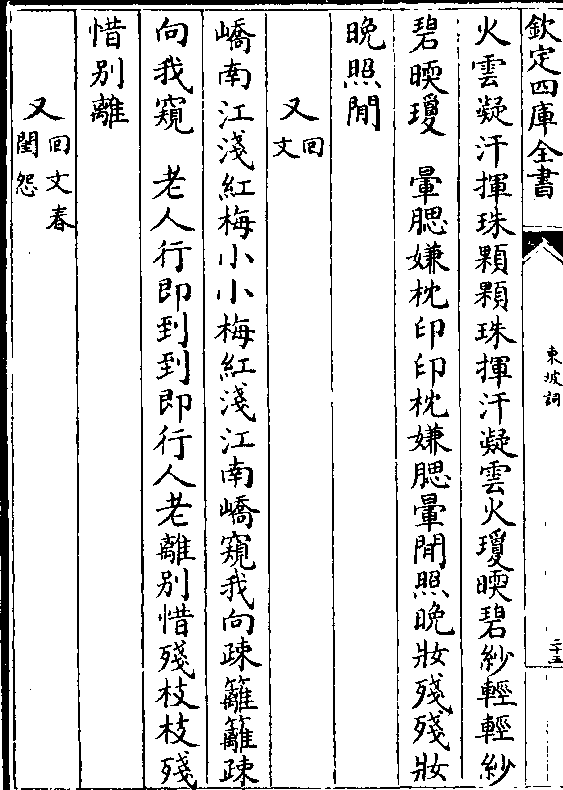 欽定四庫全書
東坡詞
二十五
火雲凝汗揮珠顆顆珠揮汗凝雲火瓊暎碧紗輕輕紗
碧暎瓊　暈腮嫌枕印印枕嫌腮暈閒照晚妝殘殘妝
晚照閒
又回文
嶠南江淺紅梅小小梅紅淺江南嶠窺我向疎籬籬疎
向我窺　老人行即到到即行人老離别惜殘枝枝殘
惜别離
又回文春閨怨